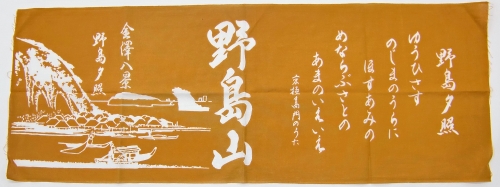 野島夕照
ゆうひさす
のしまのうらに
ほすあみの
めならぶさとの
あまのいへいへ
京極高門のうた
野島山
金澤八景
野島夕照